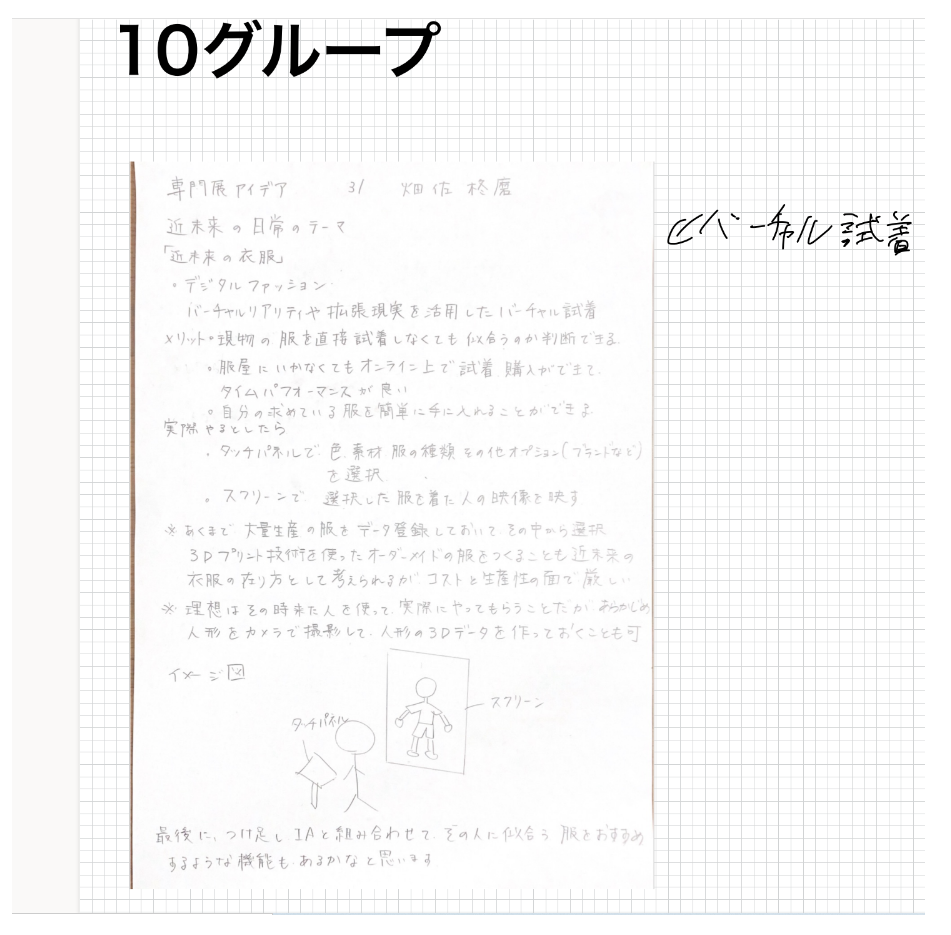 10グループ
専門展アイデア 31 畑佐 柊磨
近未来の日常のテーマ
「近未来の衣服」
・デジタルファッション
バーチャルリアリティや拡張現実を活用したバーチャル試着
メリット・現物の服を直接試着しなくても似合うのか判断できる
・服屋にいかなくてもオンライン上で試着、購入ができて、
タイムパフォーマンスが良い
・自分の求めている服を簡単に手に入れることができる
実際やるとしたら
・タッチパネルで 色、素材、服の種類 その他オプション(ブランドなど)
を選択
・スクリーンで 選択した服を着た人の映像を映す
※あくまで 大量生産の服をデータ登録しておいて、その中から選択
3Dプリント技術を使ったオーダーメイドの服をつくることも近未来の
衣服の在り方として考えられるが、コストと生産性の面で厳しい
※理想はその時来た人を使って、実際にやってもらうことだが、あらかじめ
人形をカメラで撮影して、人形の3Dデータを作っておくことも可
イメージ図
スクリーン
タッチパネル
最後に、つけ足し IAと組み合わせて、その人に似合う 服をおすすめ
するような機能も、あるかなと思います
バーチャル試着